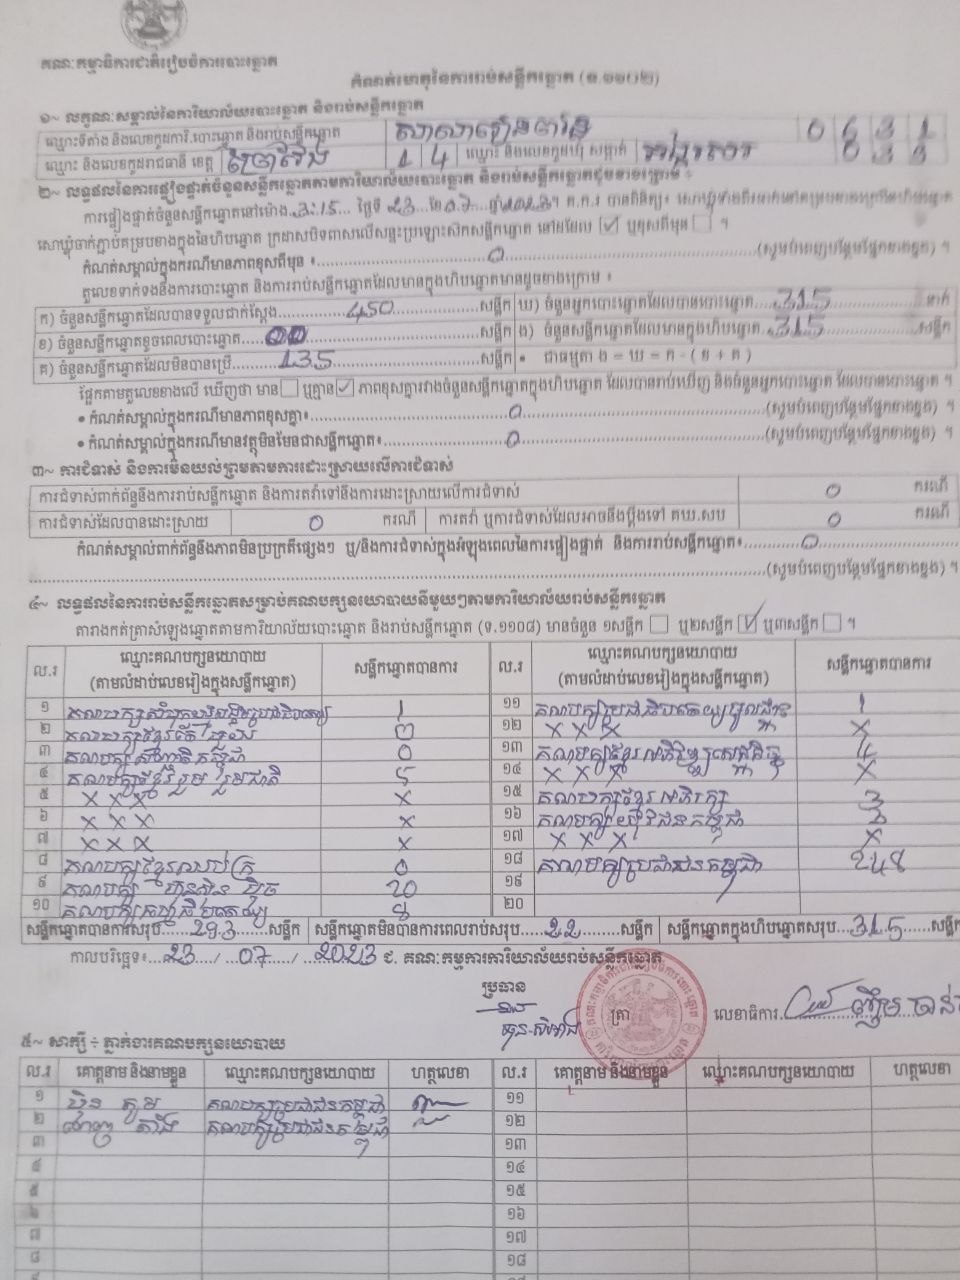 គណៈកម្មាធិការជាតិរៀបចំការបោះឆ្នោត
កំណត់ហេតុនៃការរាប់សន្លឹកឆ្នោត (ទ.១១០២)
១~ លក្ខណៈសម្គាល់នៃការិយាល័យបោះឆ្នោត និងរាប់សន្លឹកឆ្នោត
ឈ្មោះទីតាំង និងលេខកូដការិ.បោះឆ្នោត និងរាប់សន្លឹកឆ្នោត សាលារៀន 0631
ឈ្មោះ និងលេខកូដរាជធានី ខេត្ត ព្រៃវែង 14 ឈ្មោះ និងលេខកូដឃុំ សង្កាត់
២~ លទ្ធផលនៃការផ្ទៀងផ្ទាត់ចំនួនសន្លឹកឆ្នោតតាមការិយាល័យបោះឆ្នោត និងរាប់សន្លឹកឆ្នោតដូចខាងក្រោម ៖
ការផ្ទៀងផ្ទាត់ចំនួនសន្លឹកឆ្នោតនៅម៉ោង 3:15 ថ្ងៃទី 23 ខែ 07 ឆ្នាំ 2023។ គ.ក.រ បានពិនិត្យ
សោឃ្លុំចាក់ភ្ជាប់គម្របខាងក្នុងនៃហិបឆ្នោត ក្រដាសបិទពាសលើសន្ទះប្រឡោះស៊កសន្លឹកឆ្នោត នៅដដែល ☑ ឬខុសពីមុន ☐ ។
កំណត់សម្គាល់ក្នុងករណីមានភាពខុសពីមុន ៖ 0 (សូមបំពេញបន្ថែមផ្នែកខាងខ្នង) ។
តួលេខទាក់ទងនឹងការបោះឆ្នោត និងការរាប់សន្លឹកឆ្នោតដែលមានក្នុងហិបឆ្នោតមានដូចខាងក្រោម ៖
ក) ចំនួនសន្លឹកឆ្នោតដែលបានទទួលជាក់ស្តែង 450 សន្លឹក ឃ) ចំនួនអ្នកបោះឆ្នោតដែលបានបោះឆ្នោត 315 នាក់
ខ) ចំនួនសន្លឹកឆ្នោតខូចពេលបោះឆ្នោត 00 សន្លឹក ង) ចំនួនសន្លឹកឆ្នោតដែលមានក្នុងហិបឆ្នោត 315 សន្លឹក
គ) ចំនួនសន្លឹកឆ្នោតដែលមិនបានប្រើ 135 សន្លឹក • ជាធម្មតា ង = ឃ = ក - ( ខ + គ )
ផ្អែកតាមតួលេខខាងលើ ឃើញថា មាន ☐ ឬគ្មាន ☑ ភាពខុសគ្នារវាងចំនួនសន្លឹកឆ្នោតក្នុងហិបឆ្នោត ដែលបានរាប់ឃើញ និងចំនួនអ្នកបោះឆ្នោត ដែលបានបោះឆ្នោត ។
• កំណត់សម្គាល់ក្នុងករណីមានភាពខុសគ្នា៖ 0 (សូមបំពេញបន្ថែមផ្នែកខាងខ្នង) ។
• កំណត់សម្គាល់ក្នុងករណីមានវត្ថុមិនមែនជាសន្លឹកឆ្នោត៖ 0 (សូមបំពេញបន្ថែមផ្នែកខាងខ្នង) ។
៣~ ការជំទាស់ និងការមិនយល់ព្រមតាមការដោះស្រាយលើការជំទាស់
ការជំទាស់ពាក់ព័ន្ធនឹងការរាប់សន្លឹកឆ្នោត និងការតវ៉ាទៅនឹងការដោះស្រាយលើការជំទាស់ 0 ករណី
ការជំទាស់ដែលបានដោះស្រាយ 0 ករណី ការតវ៉ា ឬការជំទាស់ដែលអាចនឹងប្តឹងទៅ គឃ.សប 0 ករណី
កំណត់សម្គាល់ពាក់ព័ន្ធនឹងភាពមិនប្រក្រតីផ្សេងៗ ឬ/និងការជំទាស់ក្នុងអំឡុងពេលនៃការផ្ទៀងផ្ទាត់ និងការរាប់សន្លឹកឆ្នោត៖ 0
(សូមបំពេញបន្ថែមផ្នែកខាងខ្នង) ។
៤~ លទ្ធផលនៃការរាប់សន្លឹកឆ្នោតសម្រាប់គណបក្សនយោបាយនីមួយៗតាមការិយាល័យរាប់សន្លឹកឆ្នោត
តារាងកត់ត្រាសំឡេងឆ្នោតតាមការិយាល័យបោះឆ្នោត និងរាប់សន្លឹកឆ្នោត (ទ.១១០៨) មានចំនួន ១សន្លឹក ☐ ឬ២សន្លឹក ☑ ឬ៣សន្លឹក ☐ ។
ល.រ ឈ្មោះគណបក្សនយោបាយ (តាមលំដាប់លេខរៀងក្នុងសន្លឹកឆ្នោត) សន្លឹកឆ្នោតបានការ ល.រ ឈ្មោះគណបក្សនយោបាយ (តាមលំដាប់លេខរៀងក្នុងសន្លឹកឆ្នោត) សន្លឹកឆ្នោតបានការ
១ គណបក្សសំបុកឃ្មុំសង្គមប្រជាធិបតេយ្យ 1 ១១ គណបក្សប្រជាធិបតេយ្យមូលដ្ឋាន 1
២ គណបក្សខ្មែរ ១២ x x x x
៣ គណបក្សសញ្ជាតិកម្ពុជា 0 ១៣ គណបក្សខ្មែរអភិវឌ្ឍន៍សេដ្ឋកិច្ច 4
៤ គណបក្សខ្មែររួបរួមជាតិ 5 ១៤ x x x x
៥ x x x x ១៥ គណបក្សខ្មែរអភិរក្ស 3
៦ x x x x ១៦ គណបក្សយុវជនកម្ពុជា
៧ x x x x ១៧ x x x x
៨ គណបក្សខ្មែរឈប់ក្រ 0 ១៨ គណបក្សប្រជាជនកម្ពុជា 248
៩ គណបក្ស ហ៊្វុនស៊ិនប៉ិច 20 ១៩
១០ គណបក្សធម្មាធិបតេយ្យ 8 ២០
សន្លឹកឆ្នោតបានការសរុប 293 សន្លឹក សន្លឹកឆ្នោតមិនបានការពេលរាប់សរុប 22 សន្លឹក សន្លឹកឆ្នោតក្នុងហិបឆ្នោតសរុប 315 សន្លឹក
កាលបរិច្ឆេទ៖ 23 / 07 / 2023 ជ. គណៈកម្មការការិយាល័យរាប់សន្លឹកឆ្នោត
ប្រធាន
ត្រា លេខាធិការ
៥~ សាក្សី ÷ ភ្នាក់ងារគណបក្សនយោបាយ
ល.រ គោត្តនាម និងនាមខ្លួន ឈ្មោះគណបក្សនយោបាយ ហត្ថលេខា ល.រ គោត្តនាម និងនាមខ្លួន ឈ្មោះគណបក្សនយោបាយ ហត្ថលេខា
១ គណបក្សប្រជាជនកម្ពុជា ១១
២ គណបក្សប្រជាជនកម្ពុជា ១២
៣ ១៣
៤ ១៤
៥ ១៥
៦ ១៦
៧ ១៧
៨ ១៨